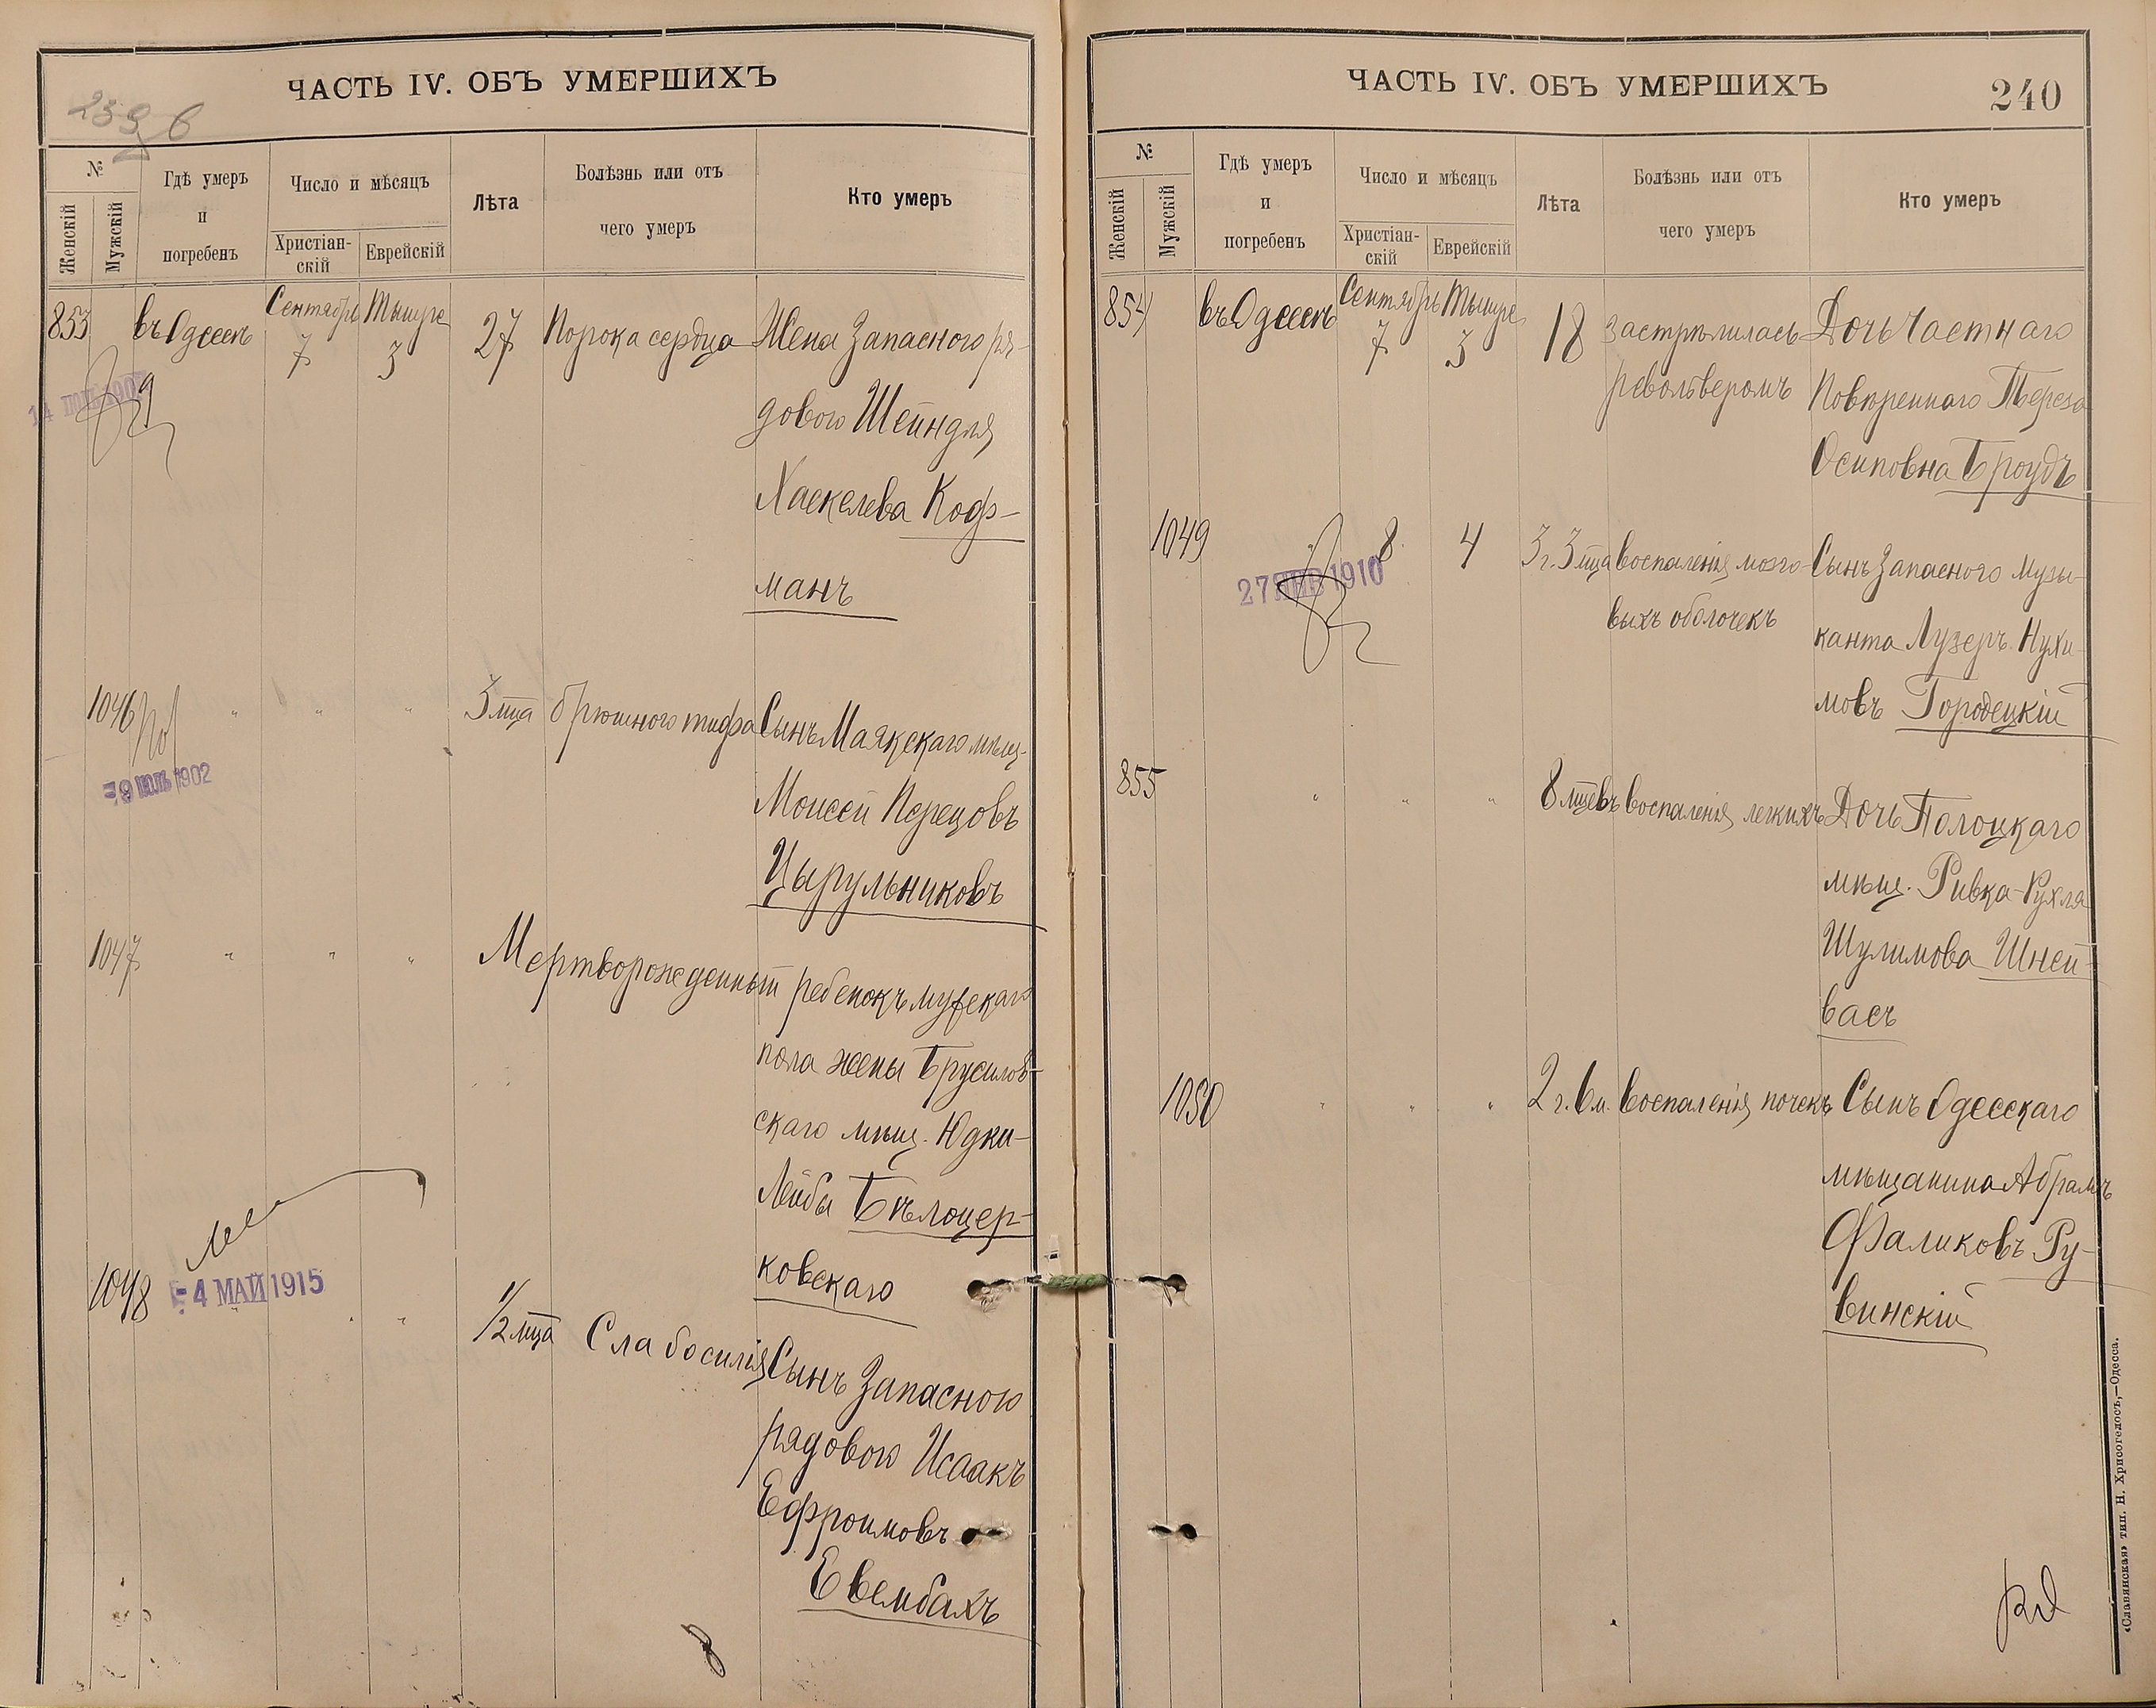 ЧАСТЬ IV. ОБЪ УМЕРШИХЪ
№
Женскій
Мужскій
Гдѣ умеръ
и
погребенъ
Число и мѣсяцъ
Христіан-
скій
Еврейскій
Лѣта
Болѣзнь или отъ
чего умеръ
Кто умеръ
853 въ Одессѣ Сентябрь 7 Тышре 3 27 Порока сердца Жена Запасного ря-
дового Шейндля
Хаскелева Коф-
манъ
1046 " " " 3 мца брюшного тифа Сынъ Маякскаго мѣщ.
9 1902
Моисей Перецовъ
Цырульниковъ
1047 " " " Мертворожденный ребенокъ мужскаго
пола жены Брусилов-
скаго мѣщ. Юдки-
Лейбы Бѣлоцер-
ковскаго
1048 4 МАЙ 1915 " " 1/2 мца Слабосилія Сынъ Запасного
рядового Исаакъ
Ефроимовъ
Евембахъ
ЧАСТЬ IV. ОБЪ УМЕРШИХЪ
240
№
Женскій
Мужскій
Гдѣ умеръ
и
погребенъ
Число и мѣсяцъ
Христіан-
скій
Еврейскій
Лѣта
Болѣзнь или отъ
чего умеръ
Кто умеръ
854 въ Одессѣ Сентябрь 7 Тышре 3 18 Застрѣлилась Дочь Частнаго
револьверомъ Повѣреннаго Тереза
Осиповна Броудъ
1049 8 4 3 г. 3 мца воспаленія мозго- Сынъ Запасного музы-
27 ЯНВ 1910
выхъ оболочекъ канта Лузеръ Нухи-
мовъ Городецкій
855 " " " 8 мцевъ воспаленія легкихъ Дочь Полоцкаго
мѣщ. Ривка-Рухля
Шулимова Шней-
васъ
1050 " " " 2 г. 6 м. Воспаленія почекъ Сынъ Одесскаго
мѣщанина Абрамъ
Фаликовъ Ру-
винскій
«Славянская» тип. Н. Хрисогелосъ,—Одесса.